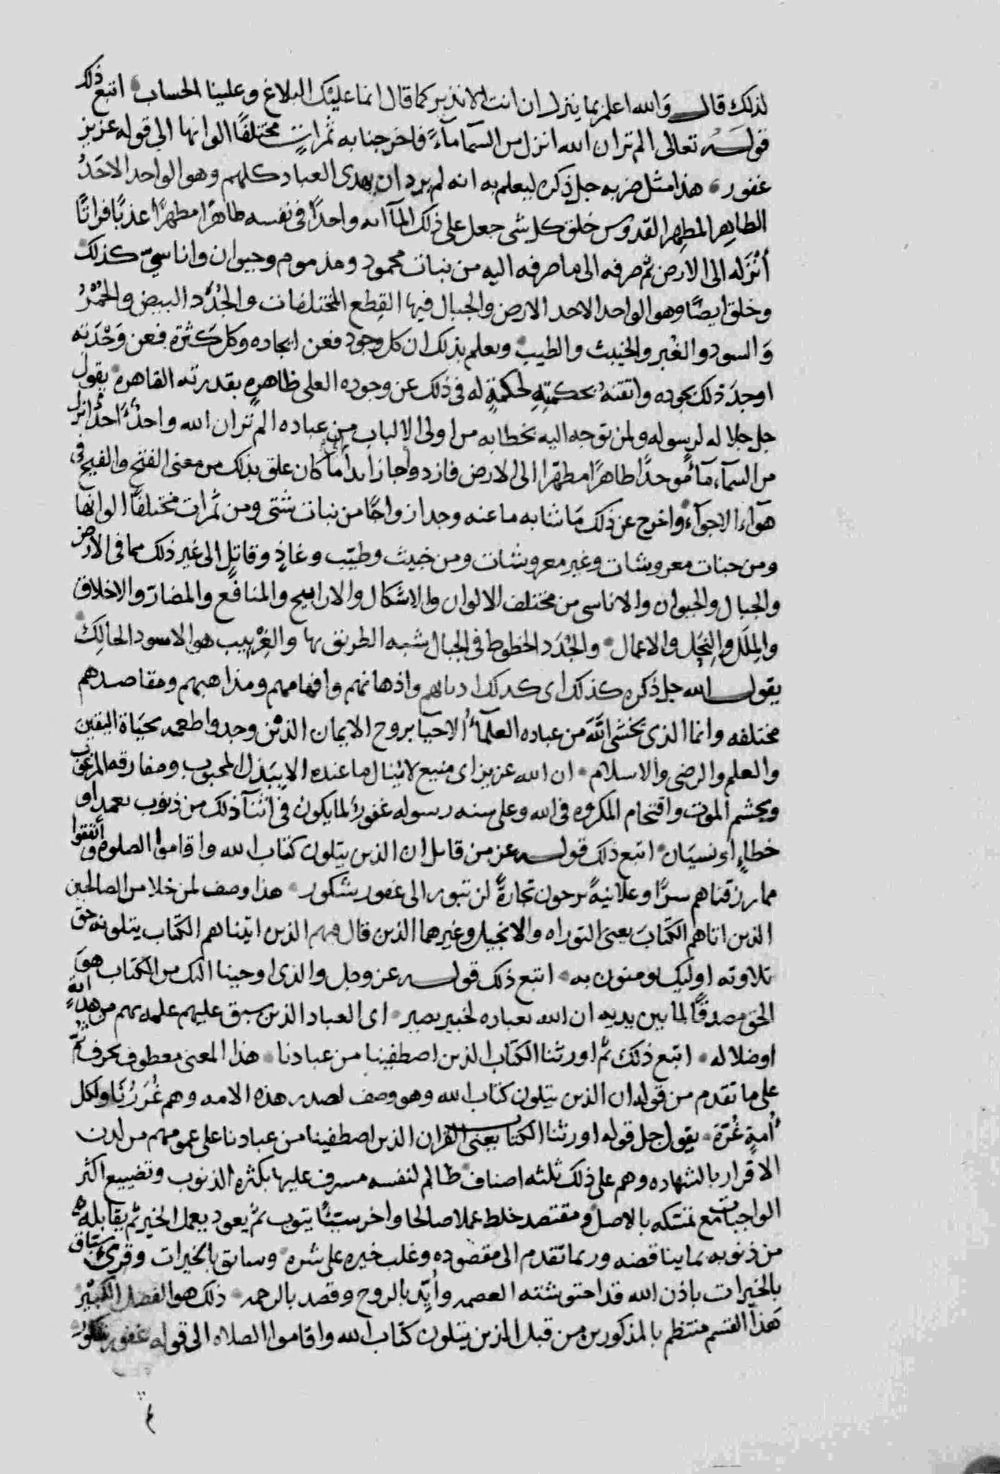 لذلك قال والله اعلم بما ينزل ان انت الا نذير كما قال انما عليك البلاغ وعلينا الحساب اتبع ذلك
قوله تعالى الم تر ان الله انزل من السما مآءً فاخرجنا به ثمراتٍ مختلفًا الوانها الى قوله عزيز
غفور هذا مثل ضربه جل ذكره ليعلم به انه لم يرد ان يهدى العباد كلهم وهو الواحد الاحَدُ
الطاهر المطهر القدوس خلق كل شى جعل على ذلك المآ انه واحدًا فى نفسه طاهرًا مطهرًا عذبًا فراتًا
أنْزَله الى الارض ثم صرفه الى ما صرفه اليه من نبات محمود ومذموم وحيوان واناسيّ كذلك
وخلق ايضًا وهو الواحد الاحد الارض والجبال فيها القِطع المختلفات والجُدَُد البيض والحُمْرُ
وَالسود والغُبر والخبيث والطيب ويعلم بذلك ان كل وجود فعن ايجاده وكل كَثرة فعن وَحْدَته
اوجدَ ذلك بجوده واتقنه بحكمته لحكمةٍ له فى ذلك عن وجوده العلى ظاهرٍ بقدرته القاهرة يقول
جل جلاله لرسوله ولمن توجه اليه بخطابه من اولى الالباب من عباده الم تر ان الله واحدٌ احدٌ انزل
من السمآء مآءً موحدًا طاهرًا مطهرًا الى الارض فازدوجا زايدًا ما كان علق بذلك من معنى الفتح والفيح فى
هوآء الاجوآء واخرج عن ذلك ما شابه ما عنه وجد ازواجًا من نبات شتى ومن ثمرات مختلفًا الوانها
ومن جنات معروشات وغير معروشات ومن خبيث وطيّب وغاذٍ وقاتلٍ الى غير ذلك مما فى الارض
والجبال والحيوان والاناسى من مختلف الالوان والاشكال والاراييح والمنافع والمضارّ والاخلاق
والمِلَل والنِحَل والاعمال والجُدَد الخطوط فى الجبال شبه الطريق بها والغِرْبيب هو الاسود الحالِكُ
يقول الله جل ذكره كذلك اى كذلك اديانهم واذهانهم وافهامهم ومذاهبهم ومقاصدهم
مختلفه وانما الذى يخشى اللهَ من عباده العلمآءُ الاحيا بروح الايمان الذين وجدوا طعمه بحيَاة اليقين
والعلم والرضى والاسلام ان الله عزيز اى منيع لا يُنال ما عنده الا ببَذل المحبوب ومفارقه المرغوب
وتجشم الموت واقتحام المكروه فى الله وعلى سنه رسوله غفورٌ لما يكون فى اثنآ ذلك من ذنوب تعمد او
خطاءٍ او نسيَان اتبع ذلك قوله عز من قايل ان الذين يتلون كتاب الله واقاموا الصلوه وانفقوا
مما رزقناهم سرًّا وعلانيةً يرجون تجارةً لن تبور الى غفور شكور هذا وصف لمن خلا من الصالحين
الذين اتاهم الكتابَ يعنى التوراه والانجيل وغيرهما الذين قال فيهم الذين اتيناهم الكتاب يتلونه حق
تلاوته اوليك يومنون به اتبع ذلك قوله عز وجل والذى اوحينا اليك من الكتاب هو
الحق مصدقًا لما بين يديه ان الله بعباده لخبير بصير اى العباد الذين سبق عليهم علمه بهم من هدايةٍ
او ضلاله اتبع ذلك ثم اورثنا الكتاب الذين اصطفينا من عبادنا هذا المعنى معطوف بحرف ثُمَّ
على ما تقدم من قوله ان الذين يتلون كتاب الله وهو وصف لصدر هذه الامه وهم غُرَرُنَا ولكل
أمةٍ غُرّة يقول جل قوله اورثنا الكتاب يعنى القران الذين اصطفينا من عبادنا على عمومهم من لدن
الاقرار بالشهاده وهم على ذلك ثلثه اصناف ظالم لنفسه مسرف عليها بكثره الذنوب وتضييع اكثر
الواجبات مع تمسكه بالاصل ومقتصد خلط عملا صالحا واخر سيئًا يتوب ثم يعود يعمل الخير ثم يقابله
من ذنوبه بما يناقضه وربما تقدم الى مقصوده وغلب خيره على شره وسابق بالخيرات وقرئ سبّاق
بالخيرات باذن الله قد احتوشته العصمه وأُيِّد بالروح وقصد بالرحمه ذلك هو الفضل الكبيْر
هَذا القسم منتظم بالمذكورين من قبل الذين يتلون كتاب الله واقاموا الصلاه الى قوله غفور شكورٌ